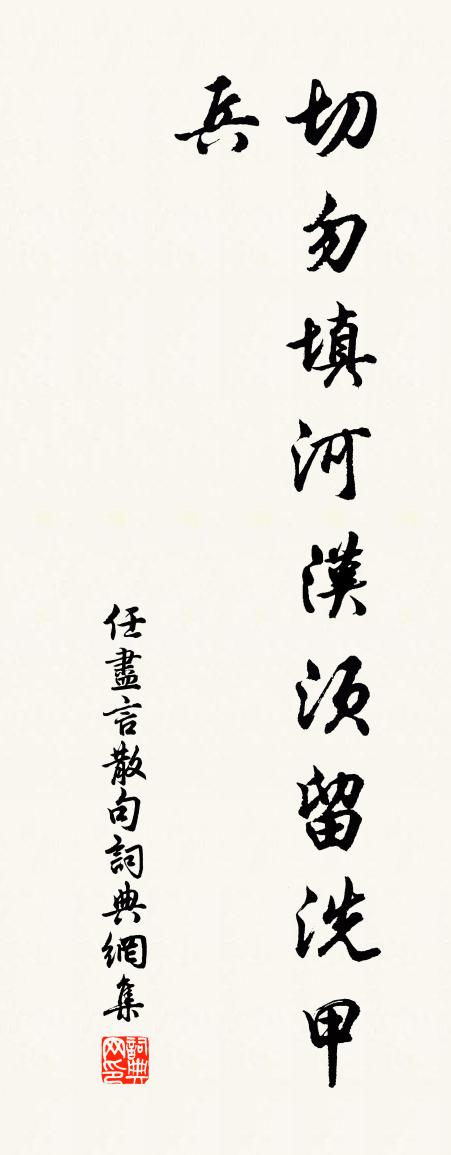 切勿填河漢須留洗甲
兵
任盡言散句詞典網集
詞典
网印